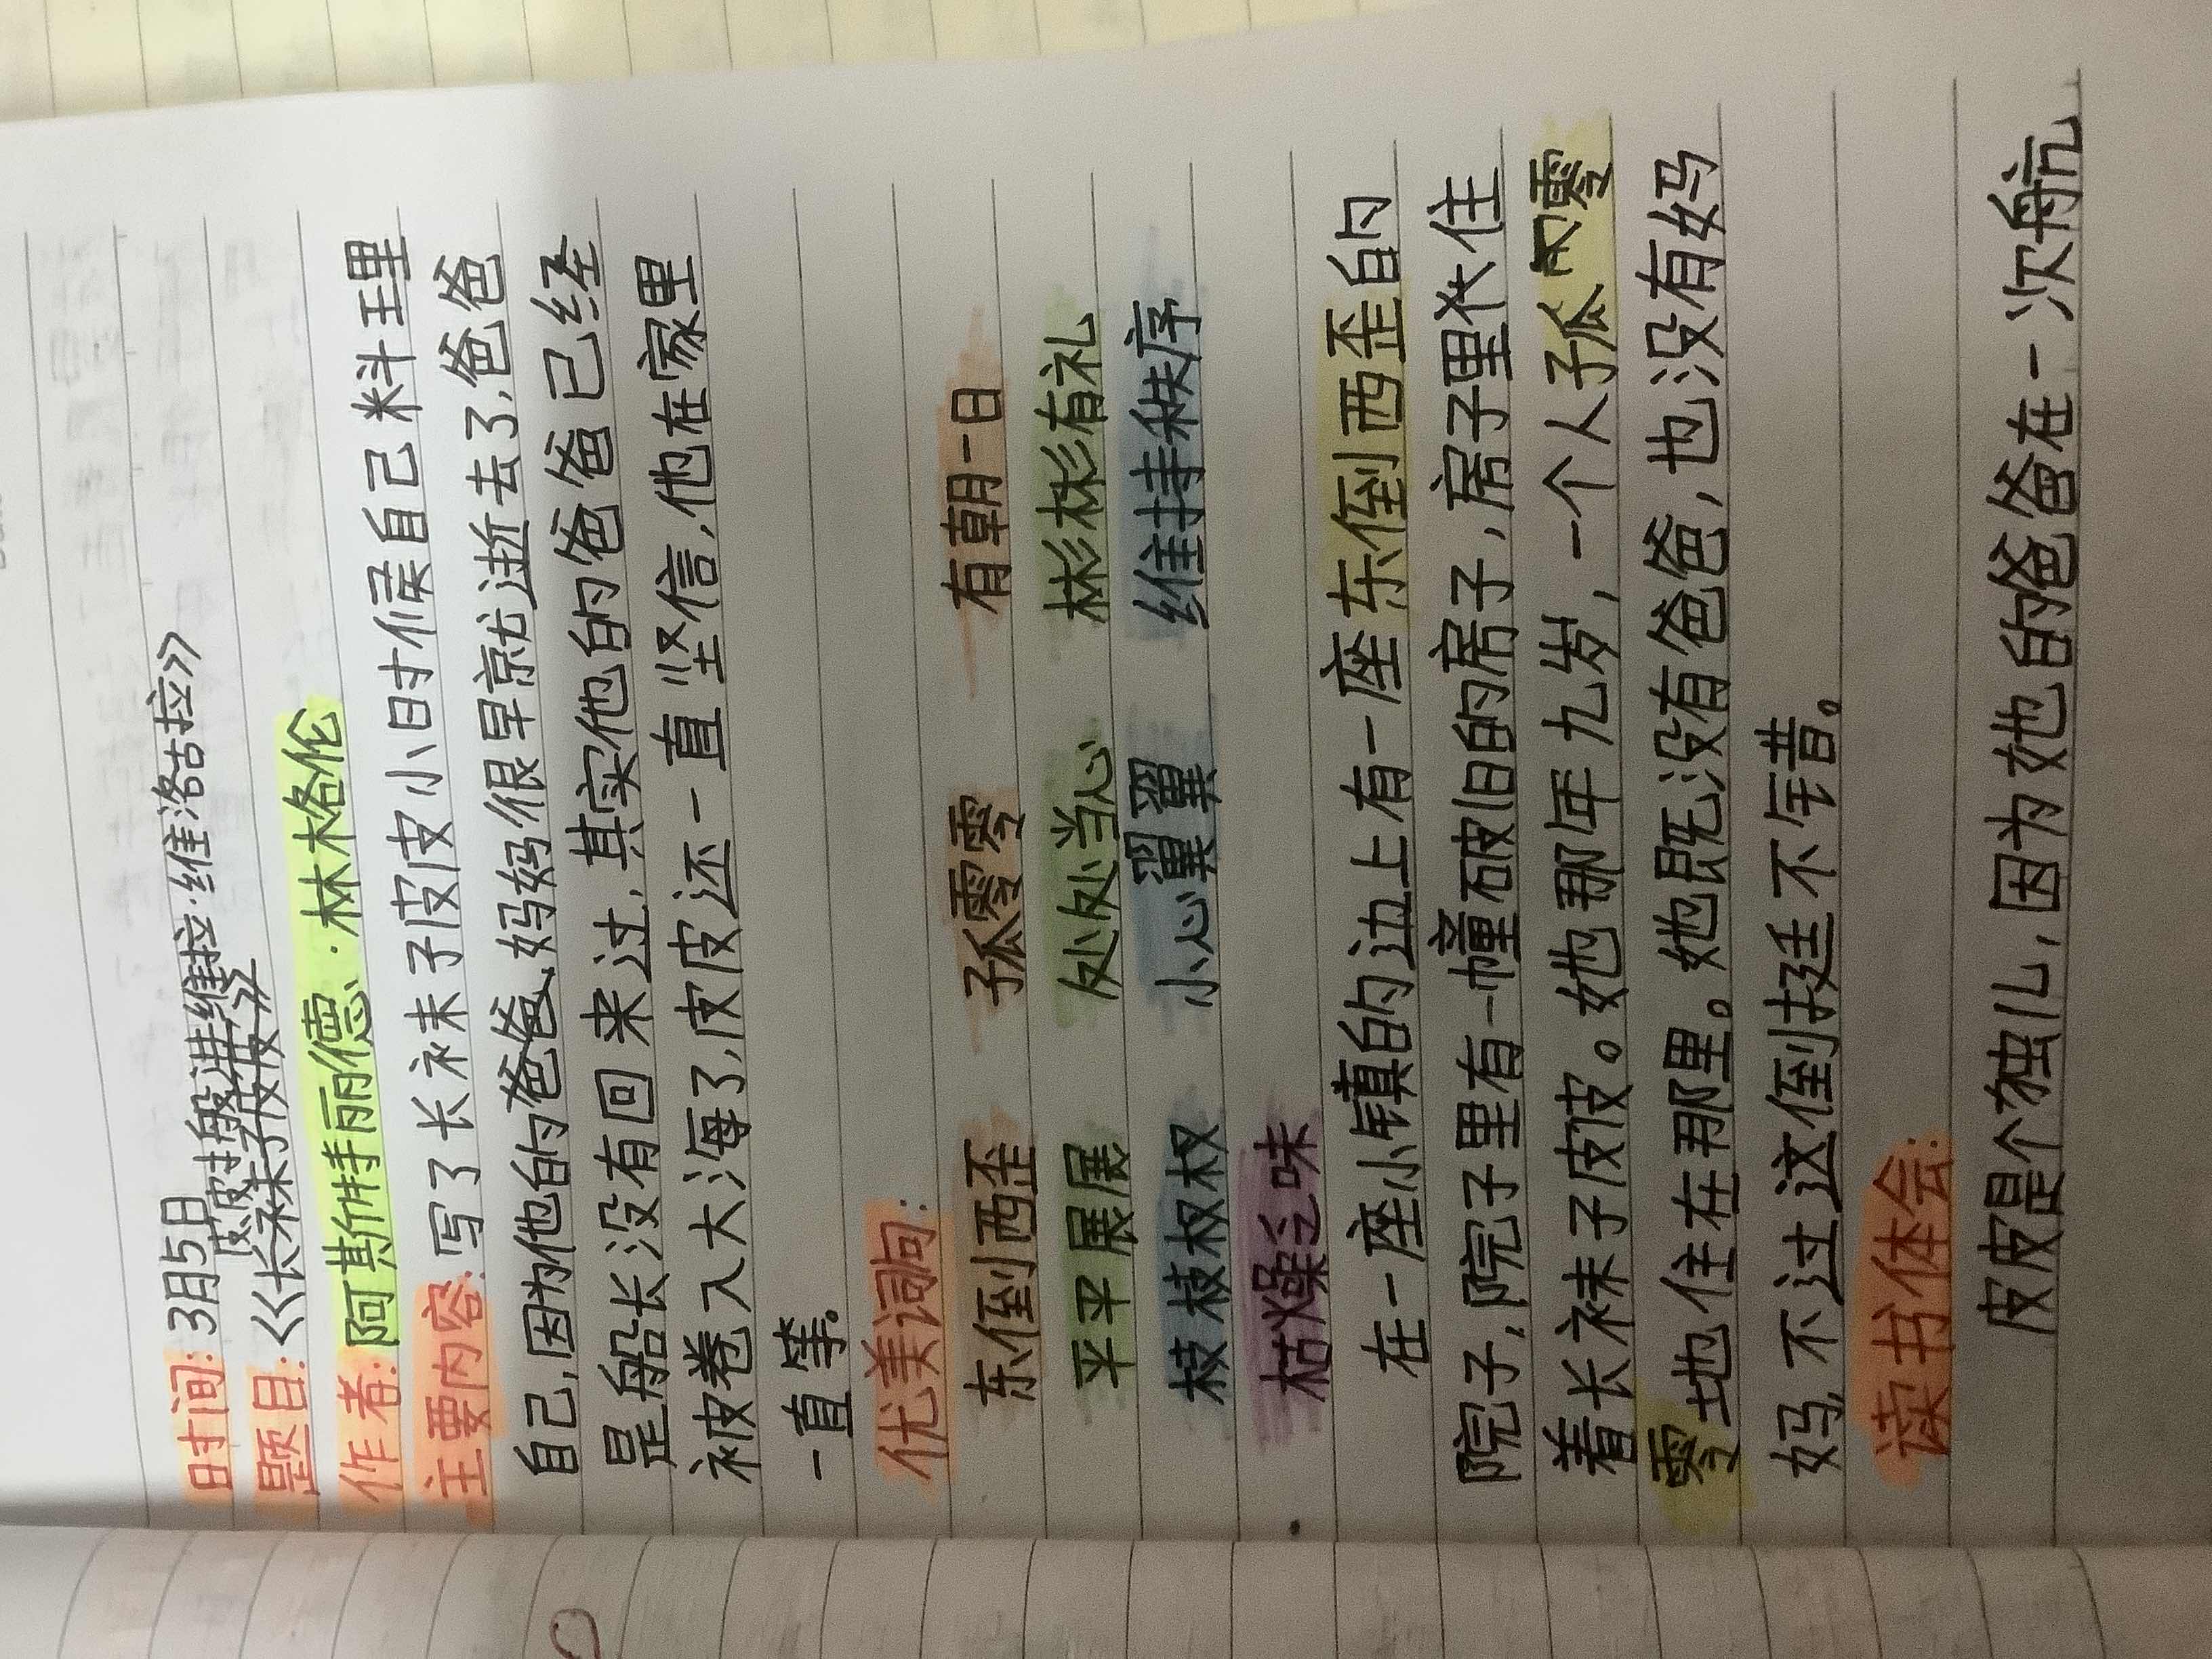 时间:3月5日
皮皮搬进维拉·维洛古拉》
题目:《长袜子皮皮》
作者:阿斯特丽德·林格伦
主要内容:写了长袜子皮皮小时候自己料理
自己,因为他的爸爸、妈妈很早就逝去了,爸爸
是船长没有回来过,其实他的爸爸已经
被卷入大海了,皮皮还一直坚信,他在家里
一直等。
优美词句:
东倒西歪 孤零零 有朝一日
平平展展 处处当心 彬彬有礼
枝枝杈杈 小心翼翼 维持秩序
枯燥乏味
在一座小镇的边上有一座东倒西歪的
院子,院子里有一幢破旧的房子,房子里住
着长袜子皮皮。她那年九岁,一个人孤零
零地住在那里。她既没有爸爸,也没有妈
妈,不过这倒挺不错。
读书体会:
皮皮是个独儿,因为她的爸爸在一次航